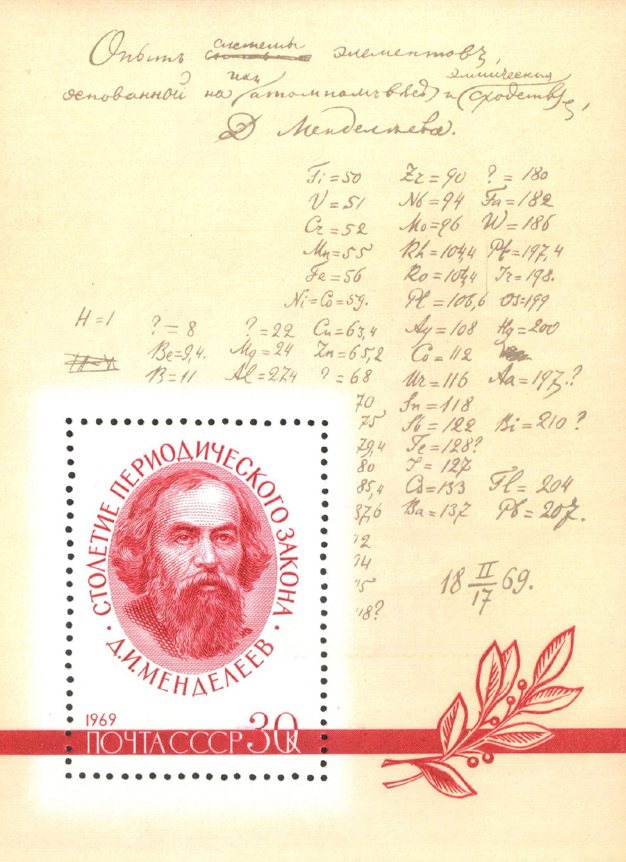 Опытъ системы элементовъ,
основанной на ихъ (атомномъ вѣсѣ) и (химическая сходствѣ),
Д Менделѣева.
Ti=50 Zr=90 ?=180
V=51 Nb=94 Ta=182
Cr=52 Mo=96 W=186
Mn=55 Rh=104,4 Pt=197,4
Fe=56 Ro=104,4 Ir=198.
Ni=Co=59. Pl=106,6 Os=199
H=1 ?=8 ?=22 Cu=63,4 Ag=108 Hg=200
Be=9,4. Mg=24 Zn=65,2 Cd=112
B=11 Al=27,4 ?=68 Ur=116 Au=197.?
70 Sn=118
75 Sb=122 Bi=210?
79,4 Te=128?
80 J=127
85,4 Cs=133 Tl=204
87,6 Ba=137 Pb=207.
92
94
95
118?
18 II/17 69.
СТОЛЕТИЕ ПЕРИОДИЧЕСКОГО ЗАКОНА
· Д.И.МЕНДЕЛЕЕВ ·
1969
ПОЧТА СССР 30к